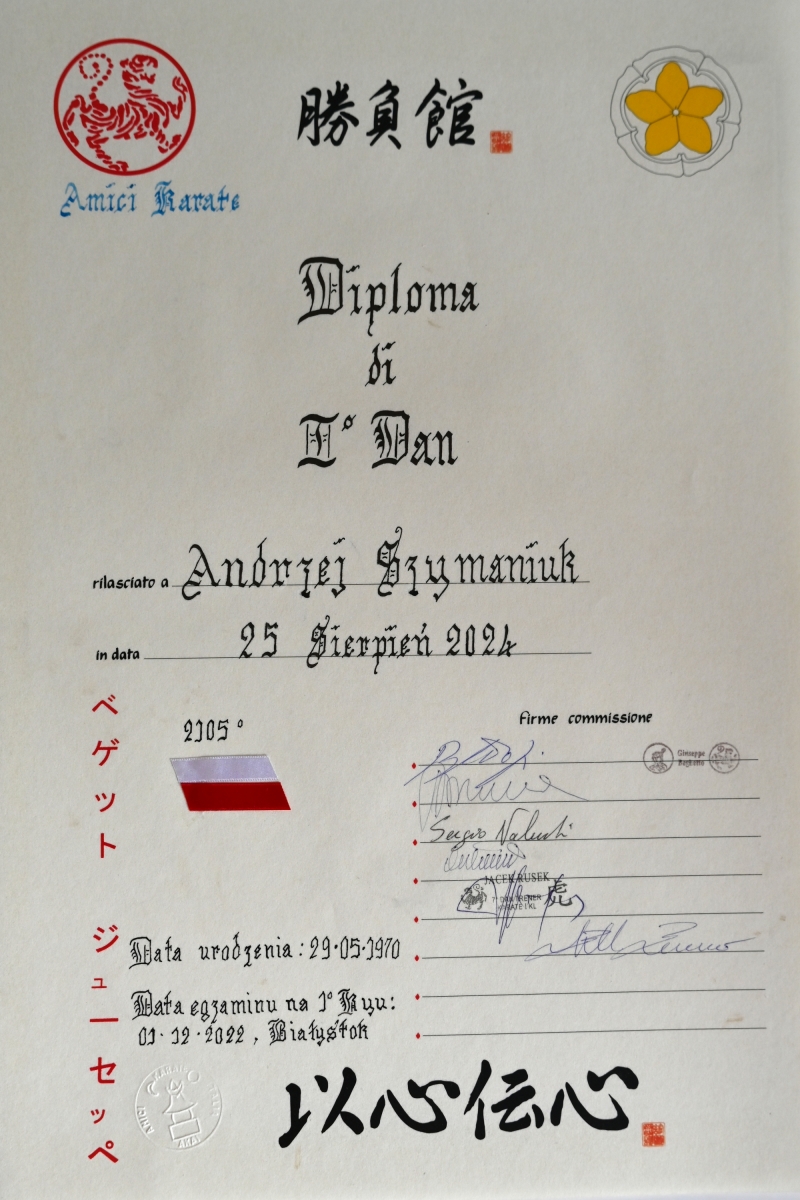 勝負館
Amici Karate
Diploma
di
I° Dan
rilasciato a Andrzej Szymaniuk
in data 25 Sierpień 2024
ベゲット ジューセッペ
2105°
Firme commissione
Giuseppe
Beghetto
Sergio Valenti
JACEK RUSEK
7° DAN TRENER
KARATE I KL
虎
Data urodzenia: 29·05·1970
Data egzaminu na 1° Kyu:
01·12·2022, Białystok
以心伝心